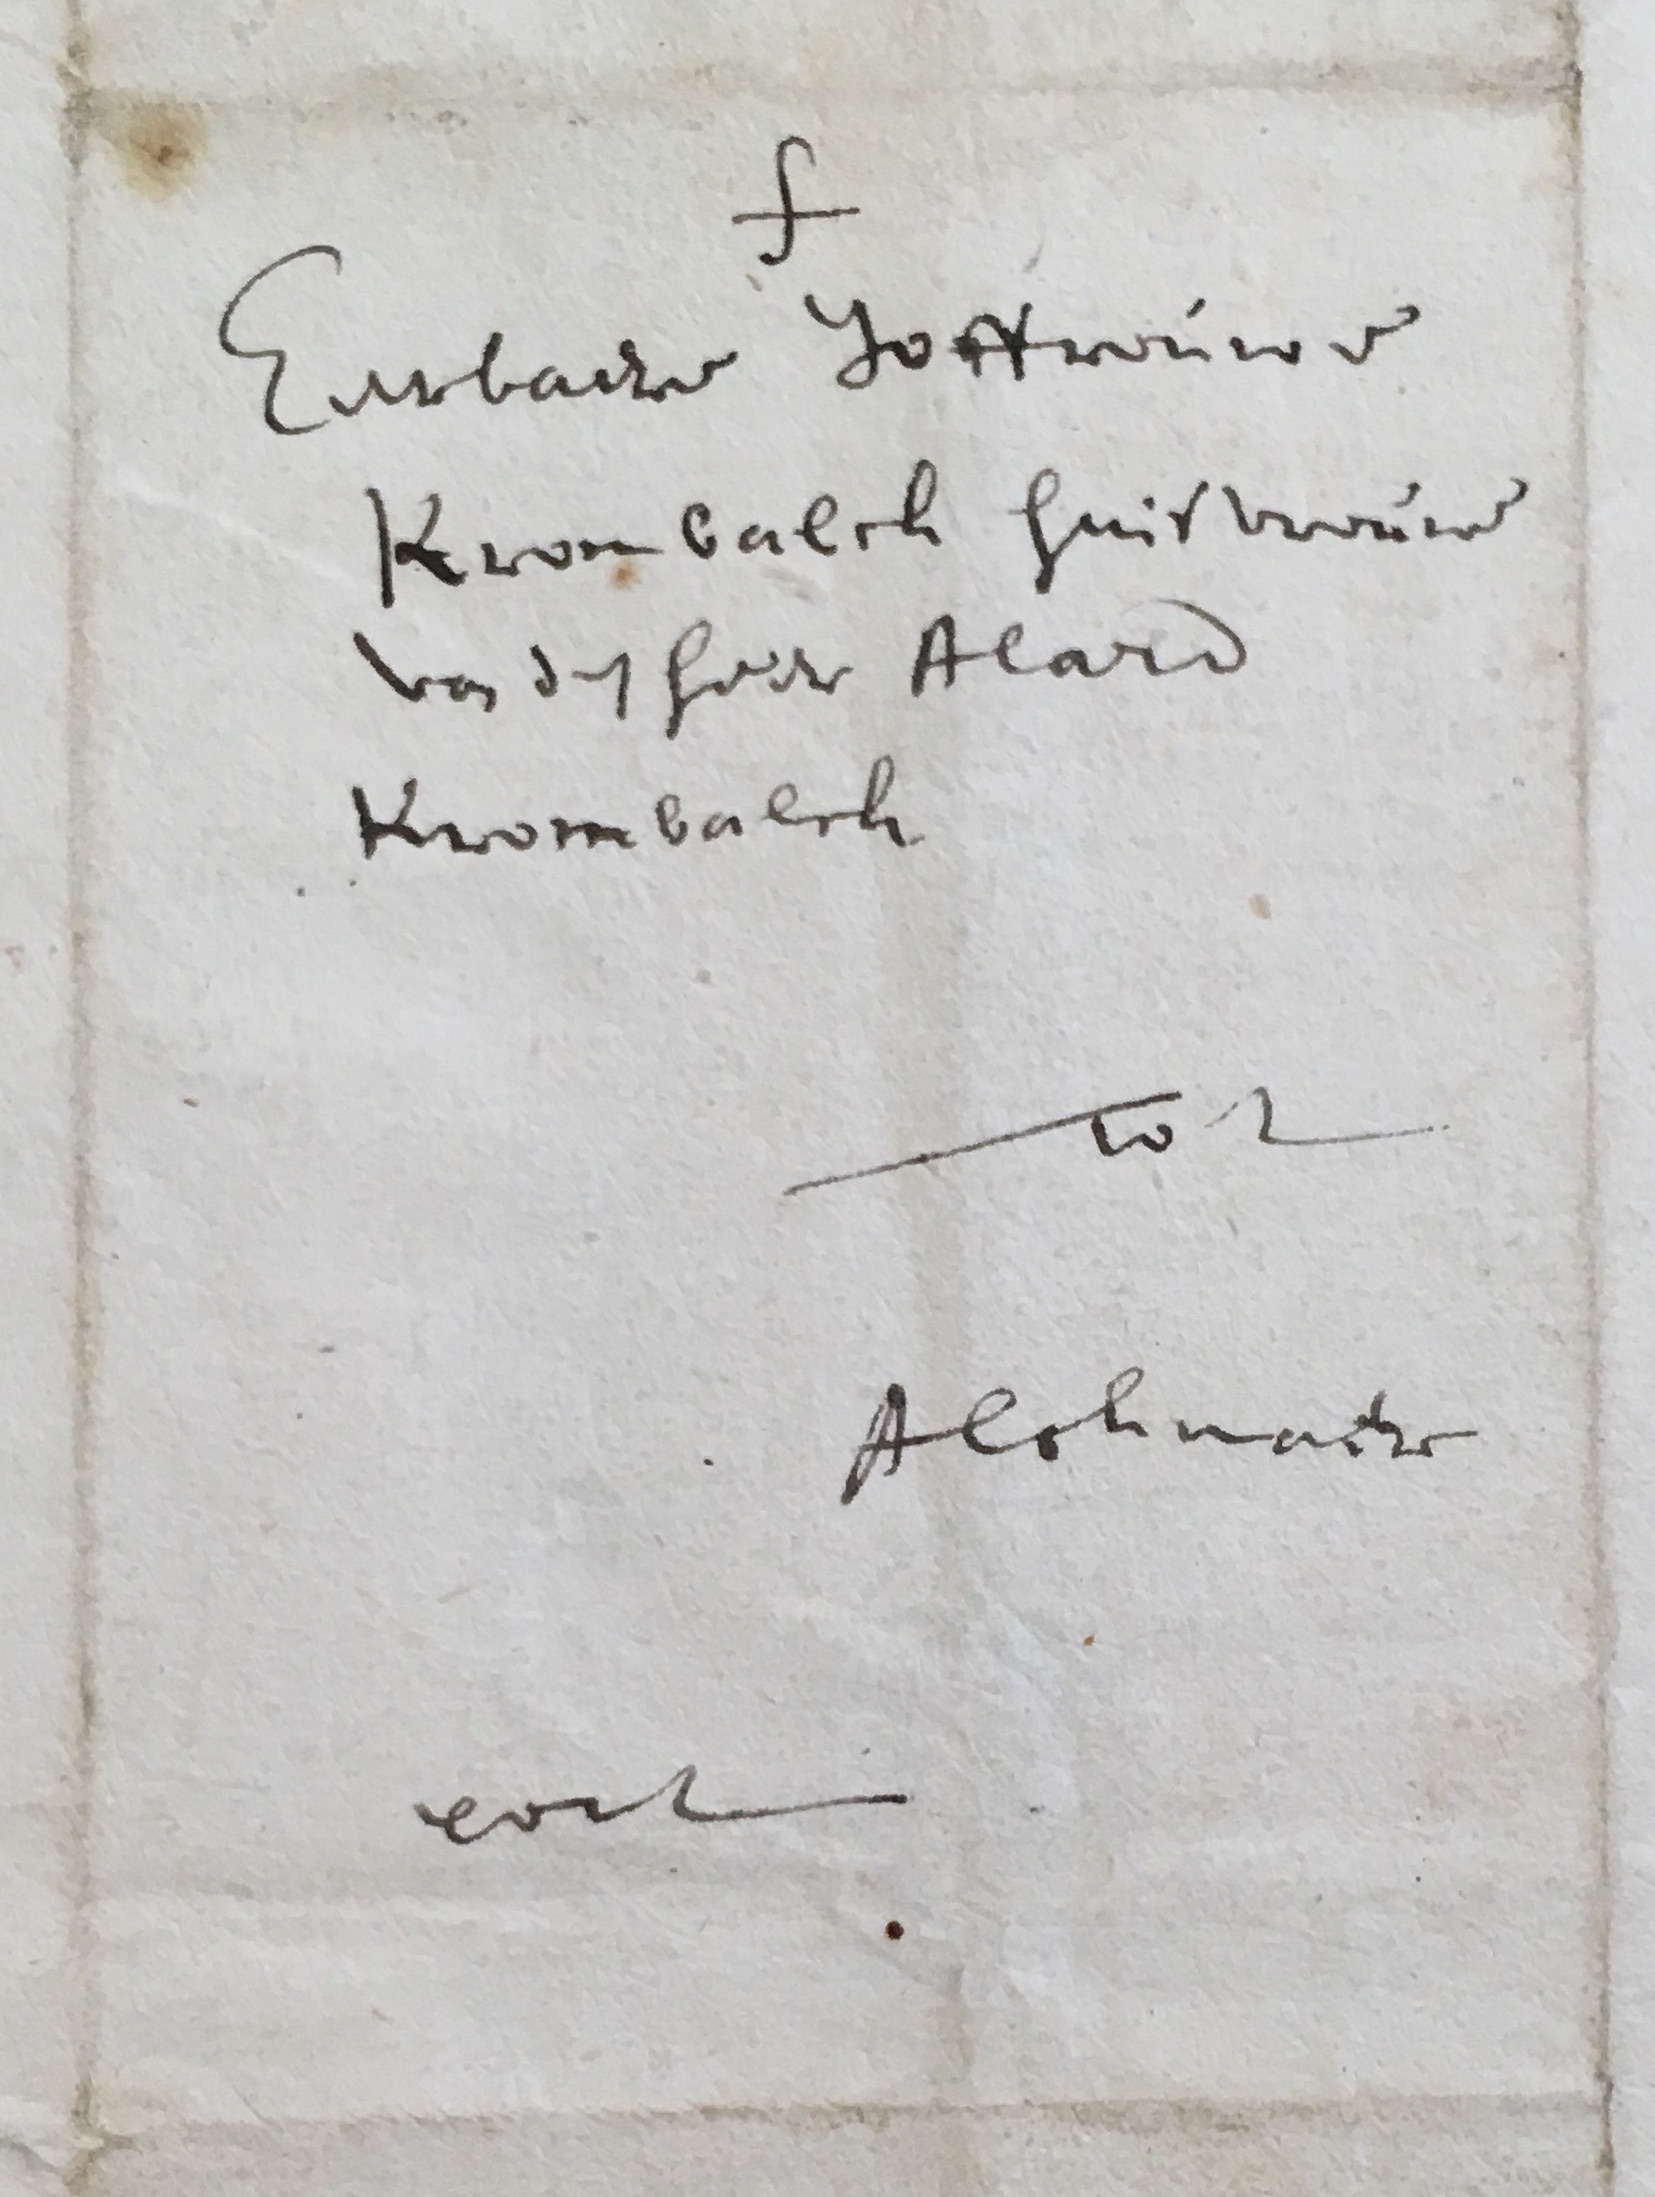 †
Eerbaere Joffrouwe
Krombalch huisvrouwe
van d' heer Alard
Krombalch
tot
Alckmaer
port